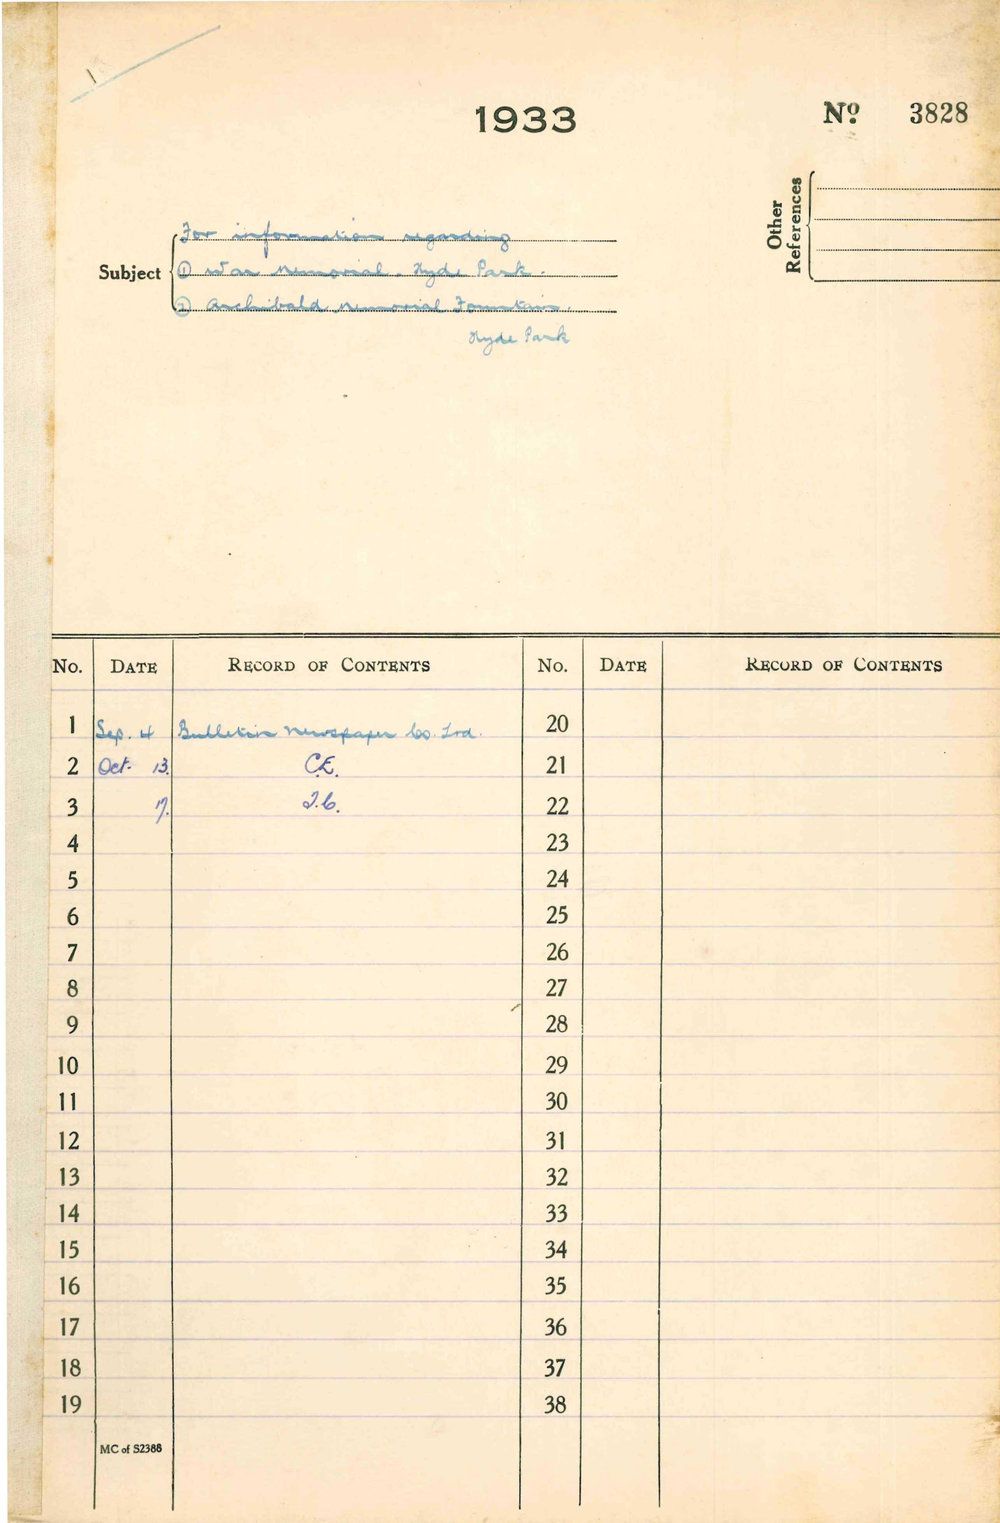 1933
No. 3828
Other References
Subject
For information regarding
① War Memorial. Hyde Park.
② Archibald Memorial Fountain.
Hyde Park
No. DATE RECORD OF CONTENTS No. DATE RECORD OF CONTENTS
1 Sep. 4 Bulletin Newspaper Co. Ltd. 20
2 Oct. 13. C.E. 21
3 T.C. 22
4 23
5 24
6 25
7 26
8 27
9 28
10 29
11 30
12 31
13 32
14 33
15 34
16 35
17 36
18 37
19 38
MC of S2388